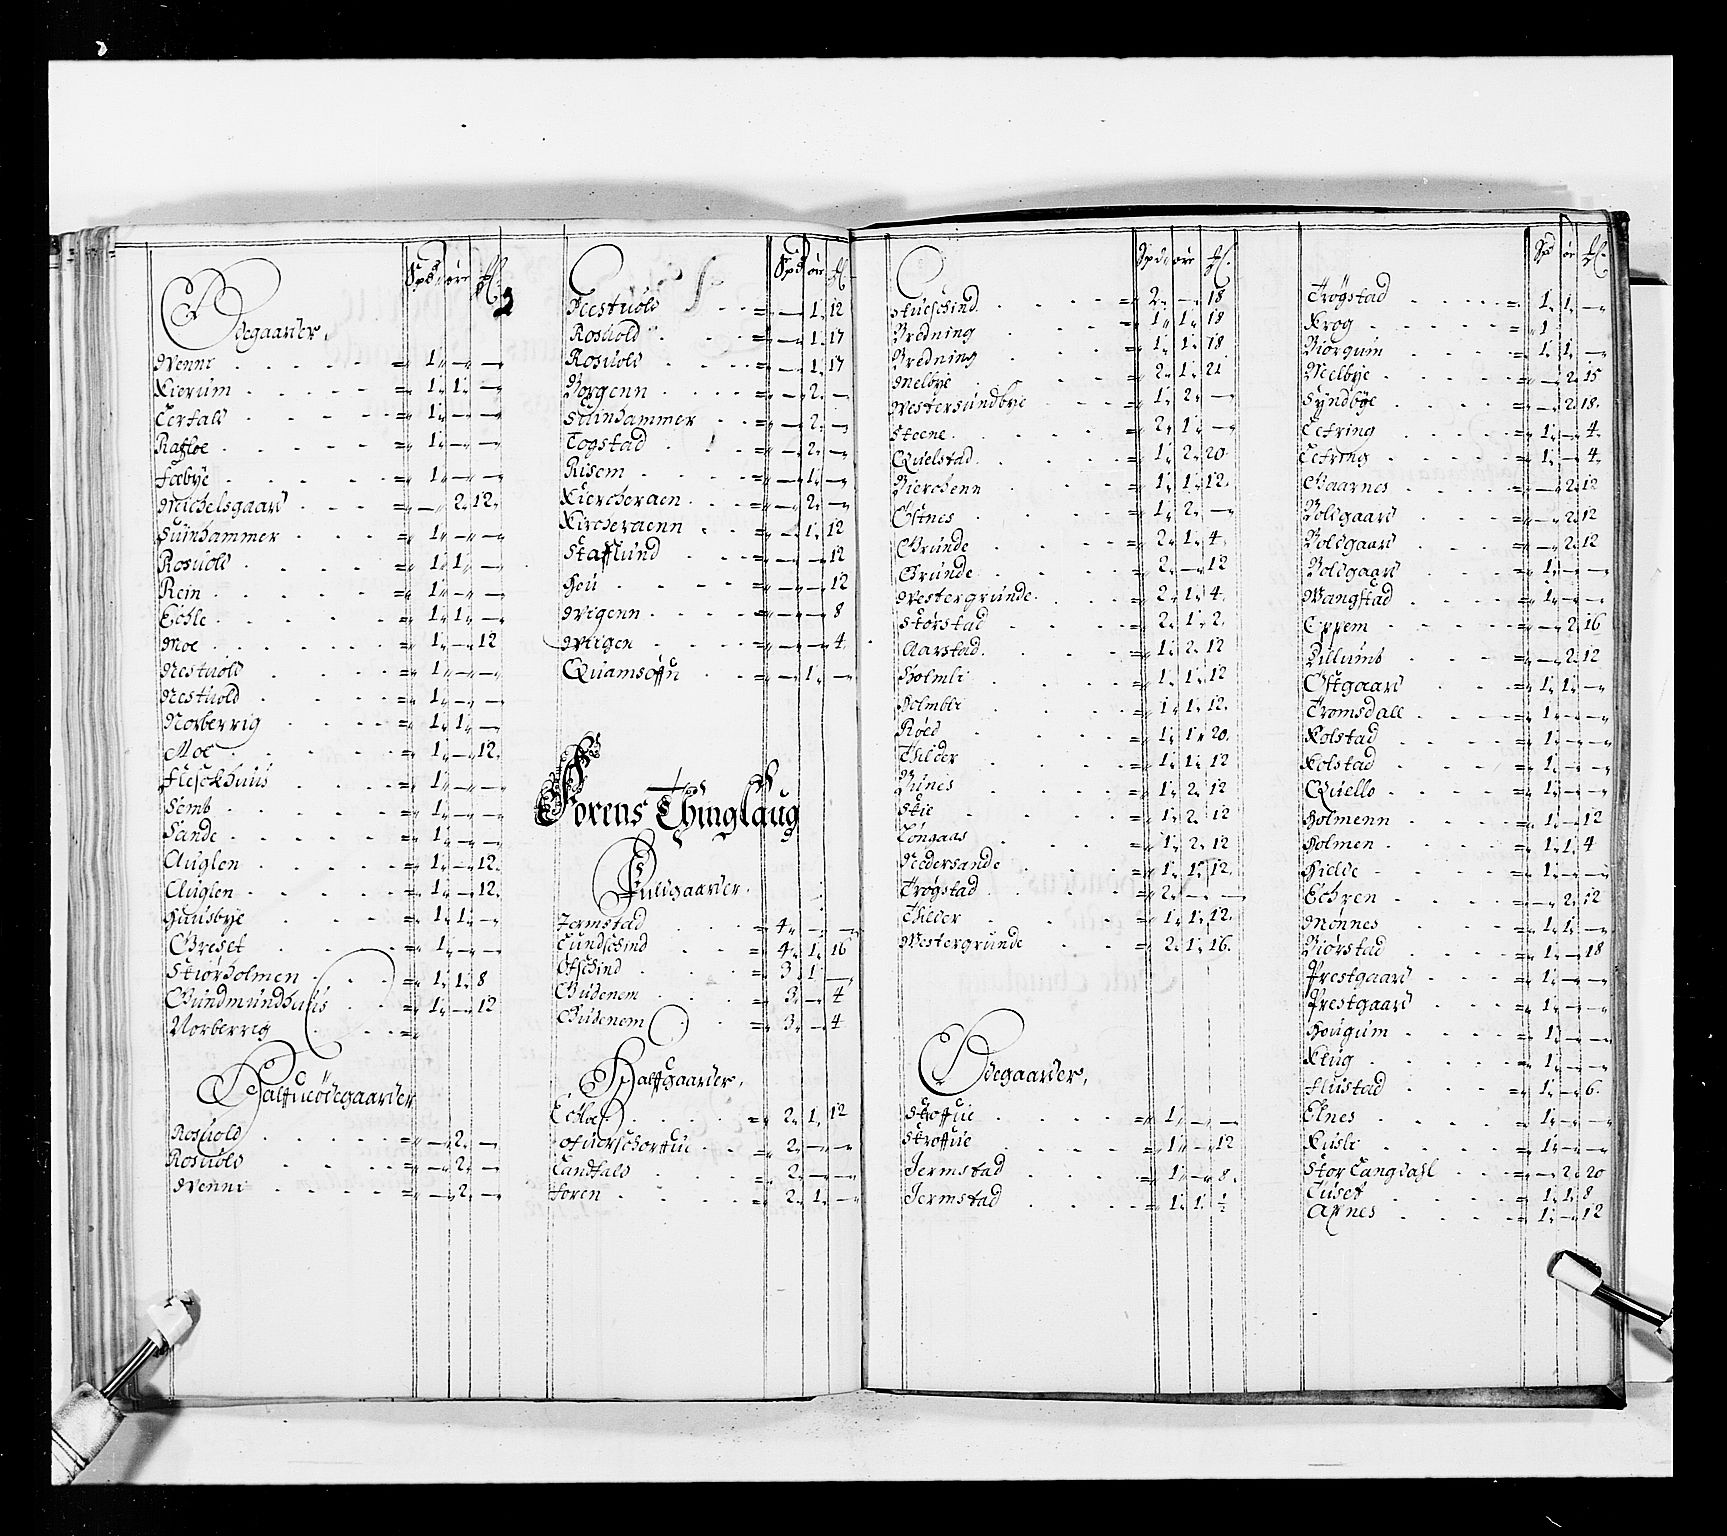 Spd. øre ₰.
Ødegaarder.
Wenni = 1. — —
Kierum = 1. 1. —
Lerfald = 1. — —
= 1. — —
Fæbye = 1. — —
Meichelsgaard = — 2. 12.
Suinhammer = 1. — —
Rosuold = 1. 1. —
Rein = 1. — —
Echle = 1. 1. —
Moe = 1. — 12
Nestuold = 1. — —
Nestuold = 1. — —
Norberrig = 1. 1. —
Moe = 1. — 12.
Fleschhuus = 1. — —
Semb = 1. — —
Sande = 1. — —
Auglen = 1. — 12.
Auglen = 1. — 12.
Huusbye = 1. 1. —
Greset = 1. — —
Skiørholmen = 1. 1. 8
Gundmundhuus = 1. — 12
Norberrig =
Halffueødegaarder
Rosuold = — 2. —
Rosuold = — 2. —
Wenni = — 2. —
Spd øre ₰.
Hestuold = — 1. 12
Rosuold = — 1. 17
Rosuold = — 1. 17
Borgenn = — 2. —
Suinhammer = — 2. —
Togstad = — 2. —
Risem = — 1. —
Kiercheraen = — 2. —
Kircheraenn = — 1. 12
Stafflund = — — 12
Heu = — — 12
Wigenn = — — 8
Wiigen = — — 4.
Quamsøffu = — 1. —
Forens Thinglaug
Fuldgaarder.
Jermstad = 4. — —
Lundschind = 4. 1. 16
Ofschind = 3. 1. —
Gudenem = 3. — 4
Gudenem = 3. — 4
Halffgaarder.
Echloe = 2. 1. 12
Ofuerschortue = 2. — —
Landfald = 2. — —
Foren = 2. 1. —
Spd. øre ₰.
Stueschind = 2. — 18
Bredning = 1. 1. 18
Bredning = 1. 1. 18
Melbye = 2. 1. 21
Westersundbye = 1. 2. —
Steene = 2. 1. —
Quelstad = 1. 2. 20.
Bierchenn = 1. 1. 12.
Østnes = 1. 2. —
Grunde = 2. 1. 4.
Grunde = 2. — 12
Westergrunde = 2. 1. 4.
Størstad = 2. 1. 2.
Aarstad = 1. 2. 12
Holmli = 1. 1. 12
Holmbli = 1. 1. 12.
Røed = 1. 1. 20.
Thilder = 1. 1. 12
Bünes = 1. 2. 12
Stie = 1. 2. 12
Lonaaas = 1. 2. 12
Nedersande = 1. 1. 12.
Trøgstad = 2. — —
Thiller = 1. 1. 12.
Westergrunde = 2. 1. 16.
Ødegaarder.
Skroffue = 1. — —
Skroffue = 1. — 12
Jermstad = 1. — 8.
Jermstad = 1. 1. ½
Spd ør ₰.
Trøgstad = 1. 1. —
Krog = 1
Biorgum = 1. 1. —
Melbye = — 2. 15
Syndbye = — 2. 18.
Lefring = 1. — 4.
Lefring = 1. — 4.
Gaarnes = — 2. 12
Boldgaard = — 2. 12
Boldgaard = — 2. 12
Boldgaard = 1. — —
Mangstad = 1. — —
Eppem = — 2. 16
Dillumb = — 2. 12
Østgaard = 1. 1. —
Tromsdall = 1. — —
Kolstad = 1. — —
Kolstad = 1. — —
Quello = 1. — —
Holmenn = 1. — 12
Holmen = 1. 1. 4
Hielde = 1. — —
Echren = — 2. 12
Mønnes = 1. 1. —
Biørstad = 1. — 18
Prestgaard = 1. — —
Prestgaard = 1. — —
Hougum = 1. — —
Klug = 1. — —
Flustad = 1. — 6.
Elnes = 1. — —
Kusli = 1. — —
Stor Langdahl = — 2. 20
Tuset = 1. 1. 8
Agnes = 1. — 12